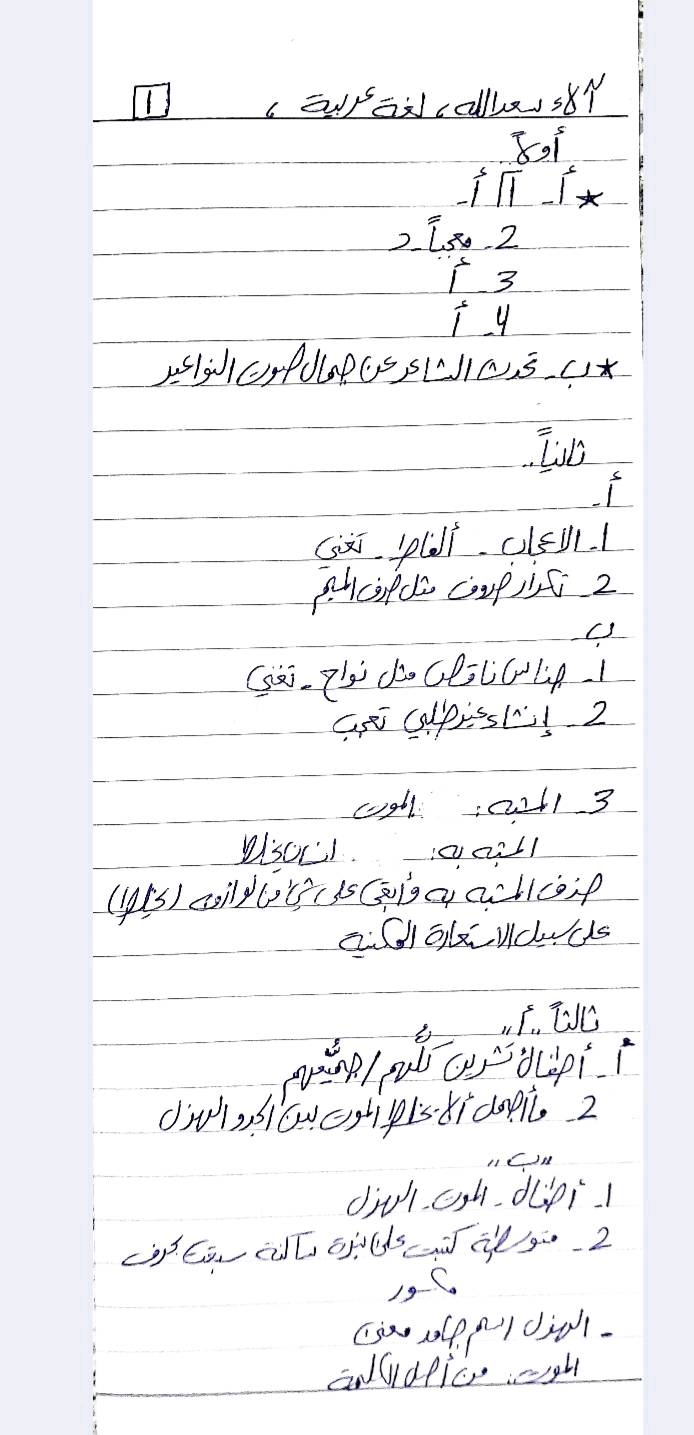 آلاء سعدالله، لغة عربية، 1
أولاً
* أ- 1 أ-
2- معجباً - د
3- أ
4- أ
* ب- تحدث الشاعر عن جمال صوت النواعير
ثانياً..
أ-
1- الاعجاب - ألفاظ - تغني
2- تكرار حروف مثل حرف الميم
ب-
1- جناس ناقص مثل نواح - تغني
2- إنشاء غير طلبي تعجب
3- المشبه: الموت
المشبه به: انسان يخلط
حذف المشبه به وأبقى على شيء من لوازمه (يخلط)
على سبيل الاستعارة المكنية
ثالثاً "أ"
أ- أطفالُ تشرين كلُّهم / جميعُهم
2- ما أجمل ألا يخلط الموت بين الجد والهزل
"ب"
1- أطفال - الموت - الهزل
2- متوسطة كتبت على نبرة ساكنة سبقت بحرف
مكسور
- الهزل اسم جامد معنى
الموت: من أصل الكلمة